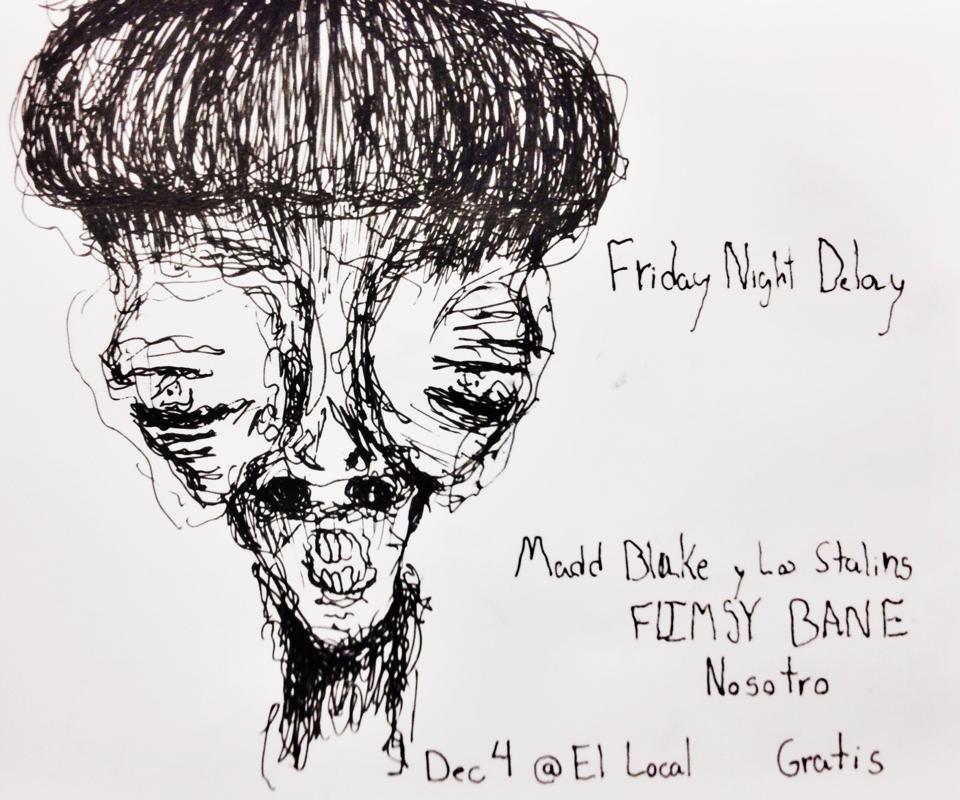 Friday Night Delay
Madd Blake y Los Stalins
FLIMSY BANE
Nosotro
Dec 4 @ El Local Gratis